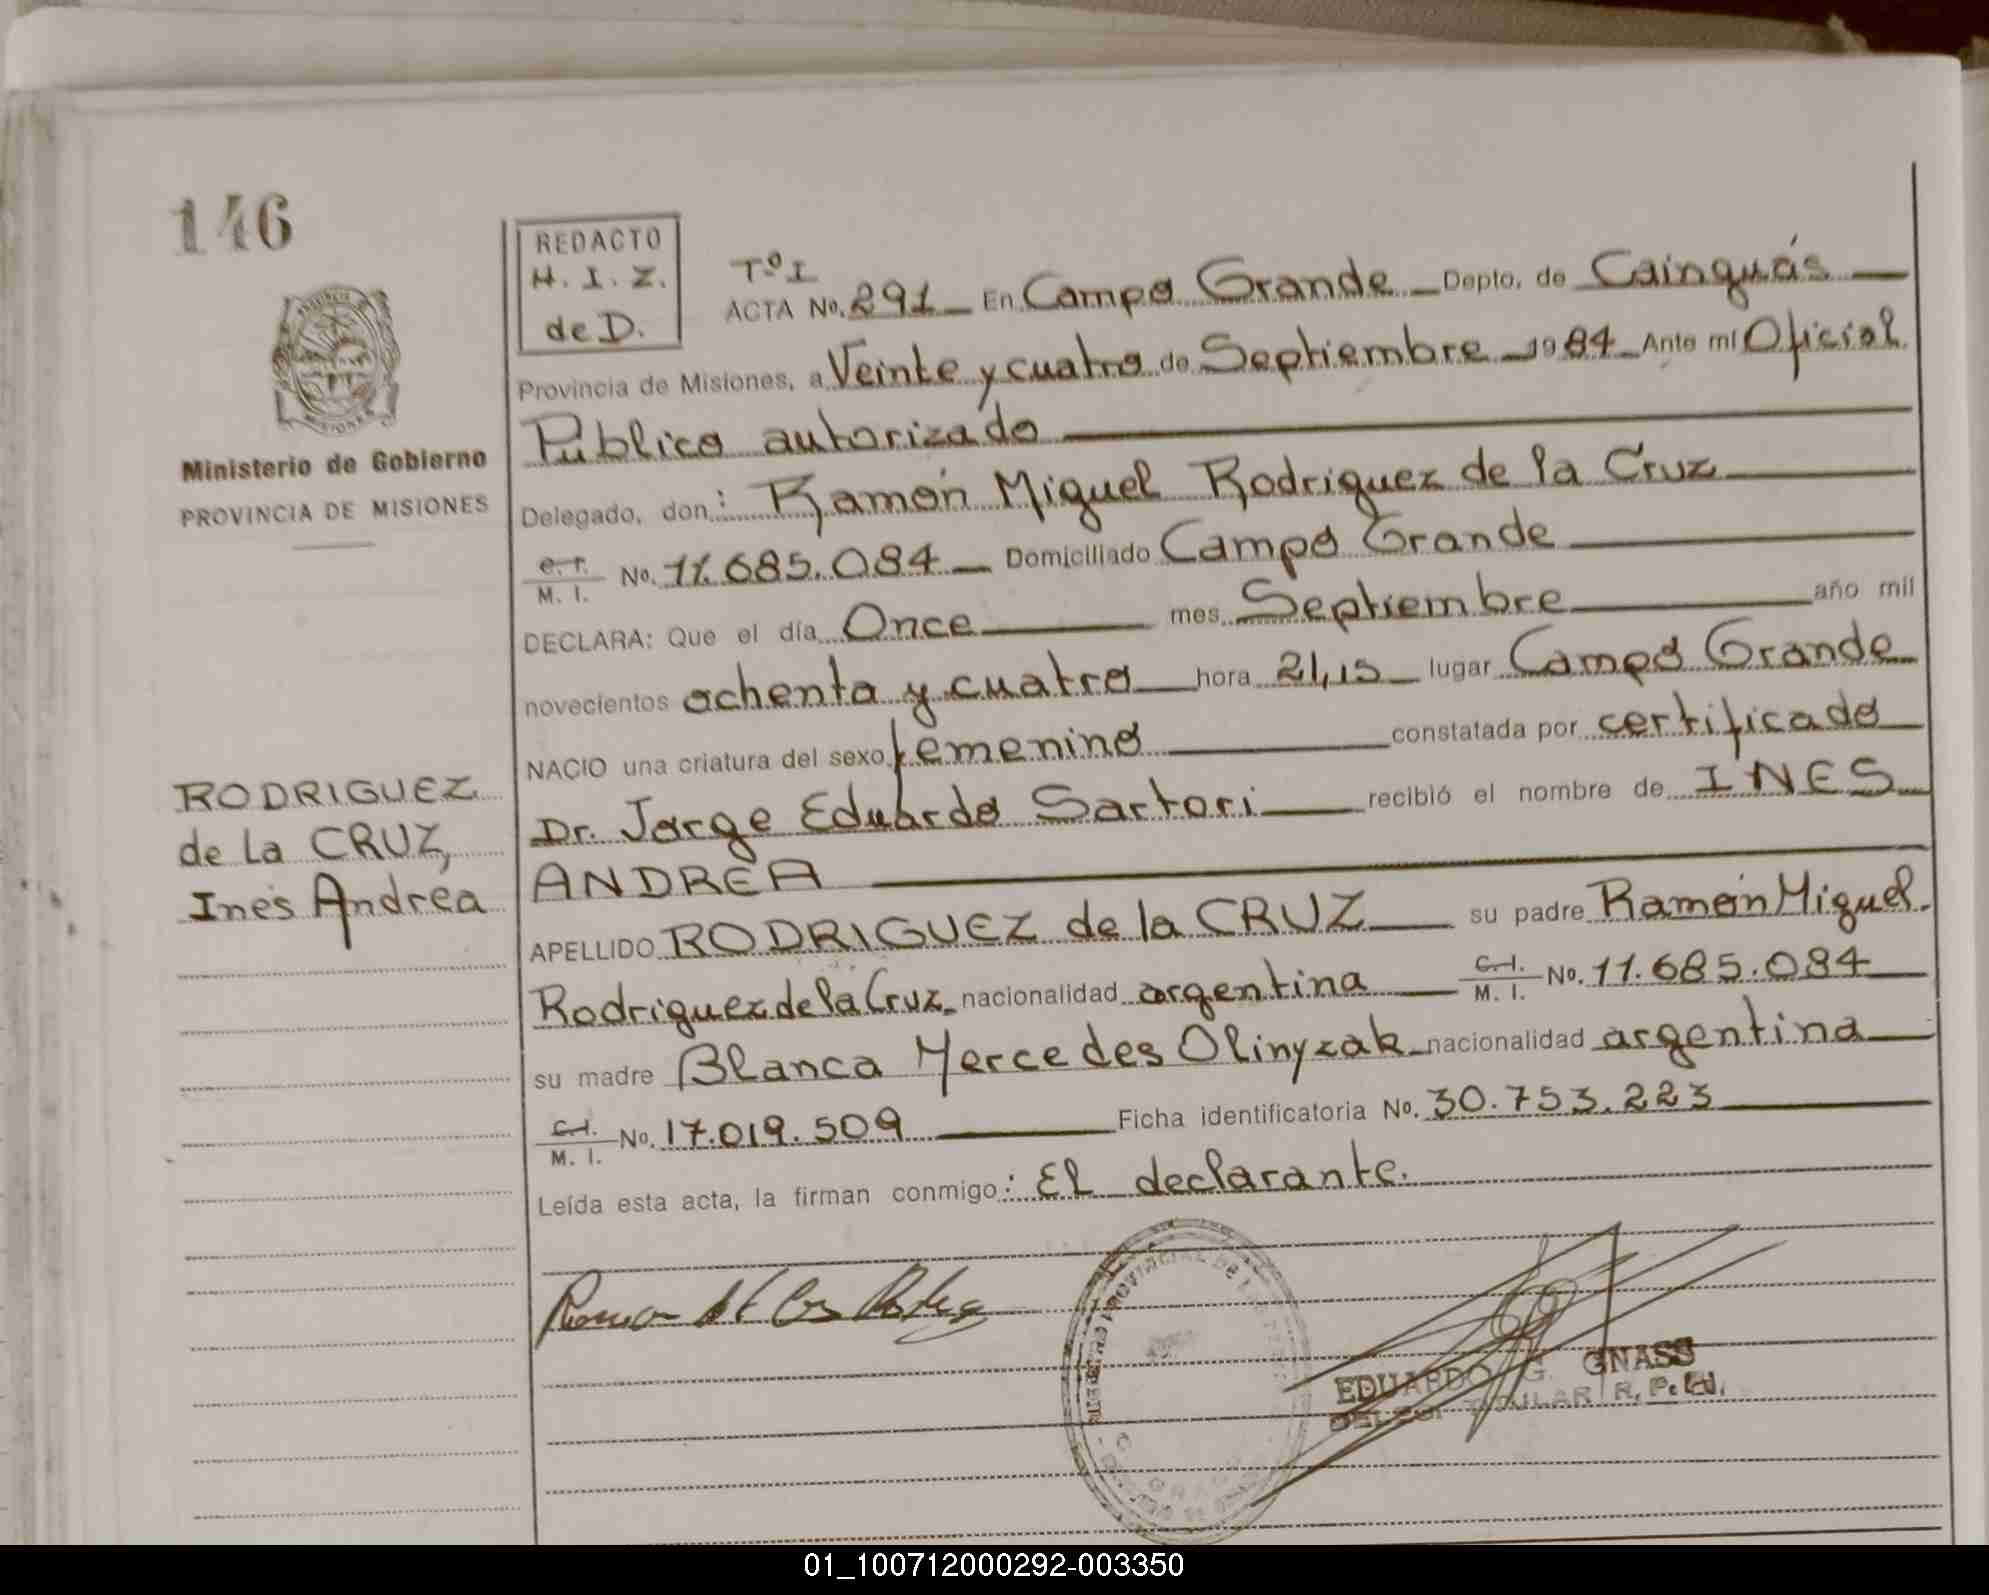 146
REDACTO
H. I. Z.
de D.
Tº I
ACTA No. 291 En Campo Grande Depto. de Cainguás
Provincia de Misiones, a Veinte y cuatro de Septiembre 1984 Ante mí Oficial
Público autorizado
Delegado, don: Ramón Miguel Rodriguez de la Cruz
M. I. No. 11.685.084 Domiciliado Campo Grande
DECLARA: Que el día Once mes Septiembre año mil
novecientos ochenta y cuatro hora 21,15 lugar Campo Grande
NACIO una criatura del sexo femenino constatada por certificado
Dr. Jorge Eduardo Sartori recibió el nombre de INES
ANDREA
APELLIDO RODRIGUEZ de la CRUZ su padre Ramón Miguel
Rodriguez de la Cruz nacionalidad argentina C.I. M. I. No. 11.685.084
su madre Blanca Mercedes Olinyzak nacionalidad argentina
C.I. M. I. No. 17.019.509 Ficha identificatoria No. 30.753.223
Leída esta acta, la firman conmigo: El declarante.
Ministerio de Gobierno
PROVINCIA DE MISIONES
RODRIGUEZ
de la CRUZ,
Inés Andrea
EDUARDO G. GNASS
TITULAR R.
01_100712000292-003350